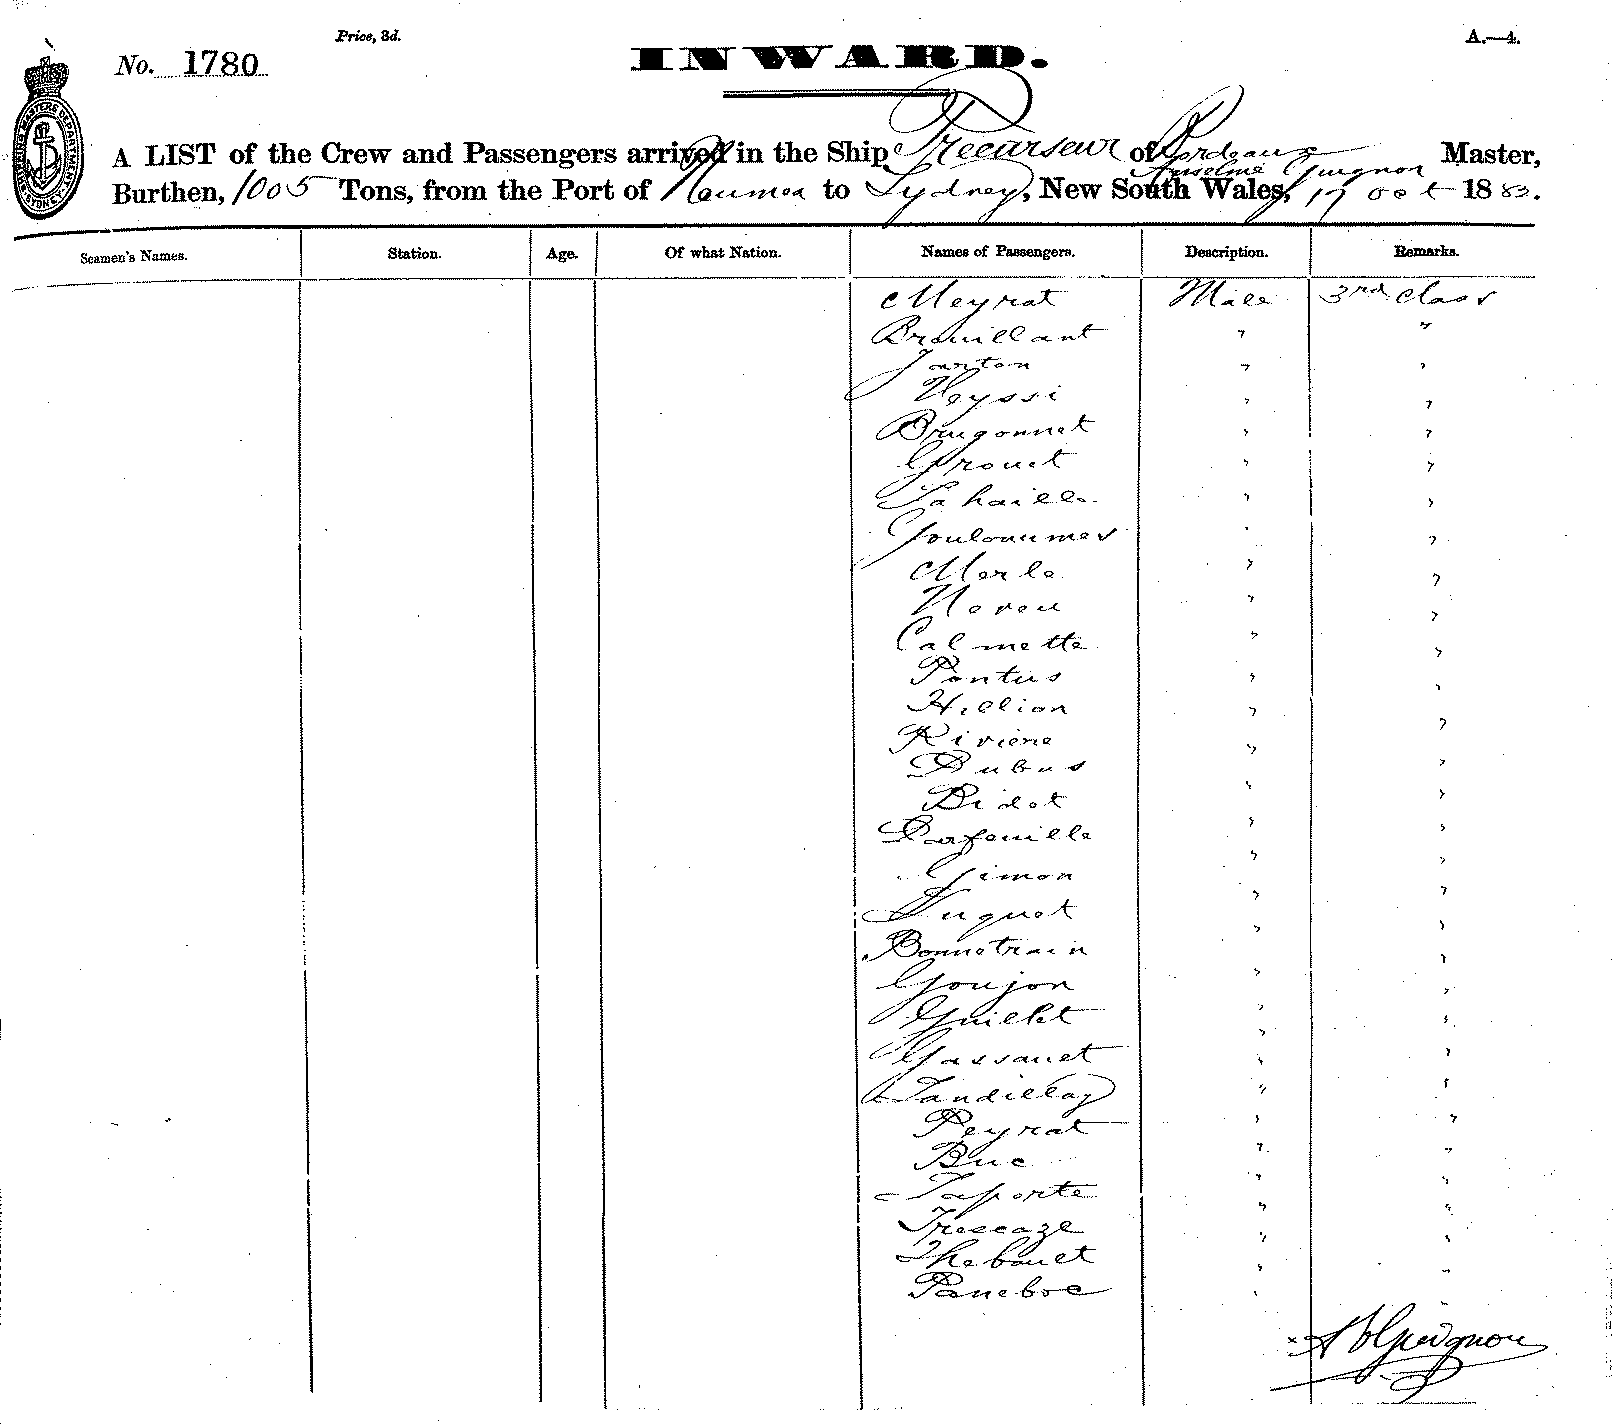 Price, 3d.
A.—4.
No. 1780
INWARD.
SHIPPING MASTERS DEPARTMENT SYDNEY
A LIST of the Crew and Passengers arrived in the Ship of Bordeaux Anselme Guignon Master,
Burthen, 1005 Tons, from the Port of Noumea to Sydney, New South Wales, 17 Oct 1883.
Seamen's Names. Station. Age. Of what Nation. Names of Passengers. Description. Remarks.
Meyrat Male 3rd class
Brouillant " "
Jarton " "
Veyssi " "
Brugonnet " "
Grouet " "
Lahaille " "
Goulonumes " "
Merle " "
Neveu " "
Calmette " "
Pontus " "
Hillion " "
Riviere " "
Dubus " "
Bidot " "
Darfeuille " "
Gimon " "
Duguet " "
Bonnetrain " "
Goujon " "
Guillet " "
Gassauet " "
Landillay " "
Peyrat " "
Buc " "
Laporte " "
Trescaze " "
Thebault " "
" "
A Guignon